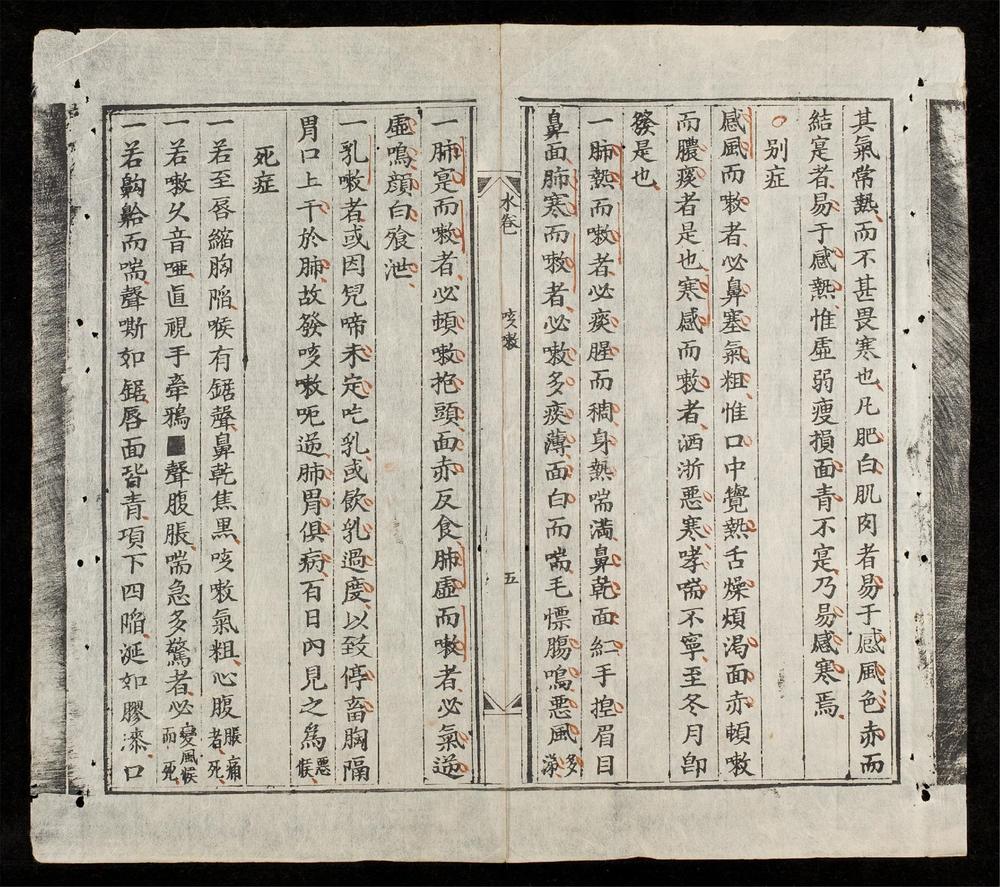 其氣常熱而不甚畏寒也凡肥白肌肉者易于感風色赤而
結寔者易于感熱惟虛弱瘦損面青不寔乃易感寒焉
○别症
感風而嗽者必鼻塞氣粗惟口中覺熱舌燥煩渴面赤頓嗽
而膿痰者是也寒感而嗽者洒淅悪寒哮喘不寧至冬月卽
發是也
一肺熱而嗽者必痰腥而稠身熱喘滿鼻乾面紅手揑眉目
鼻面肺寒而嗽者必嗽多痰薄面白而喘毛慓膓鳴悪風多
水卷 咳嗽 五
一肺寔而嗽者必頓嗽抱頭面赤反食肺虛而嗽者必氣逆
虛鳴顔白飱泄
一乳嗽者或因兒啼未定吃乳或飲乳過度以致停畜胸隔
胃口上干於肺故發咳嗽呃逆肺胃俱病百日內見之爲悪候
死症
一若至唇縮胸陷喉有鋸聲鼻乾焦黒咳嗽氣粗心腹脹痛者死
一若嗽久音啞直視手牽鴉■聲腹脹喘急多驚者必變風候而死
一若齁䶎而喘聲嘶如鋸唇面皆青項下四陷涎如膠漆口